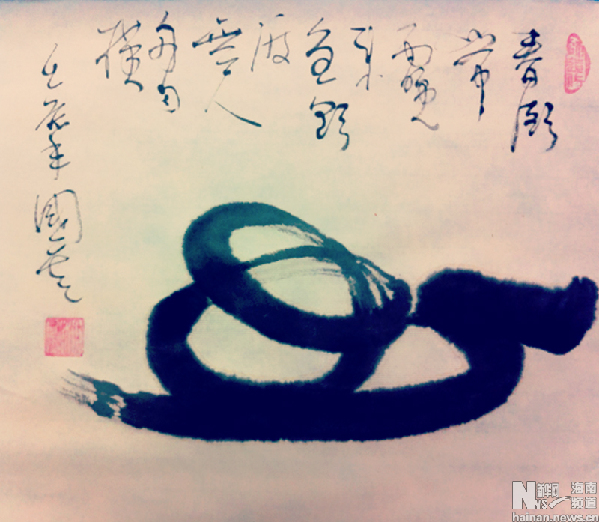 春潮
帶
雨晚
來
急野
渡
無人
舟自
横
壬辰年國
新华网
海南
频道
hainan.news.cn